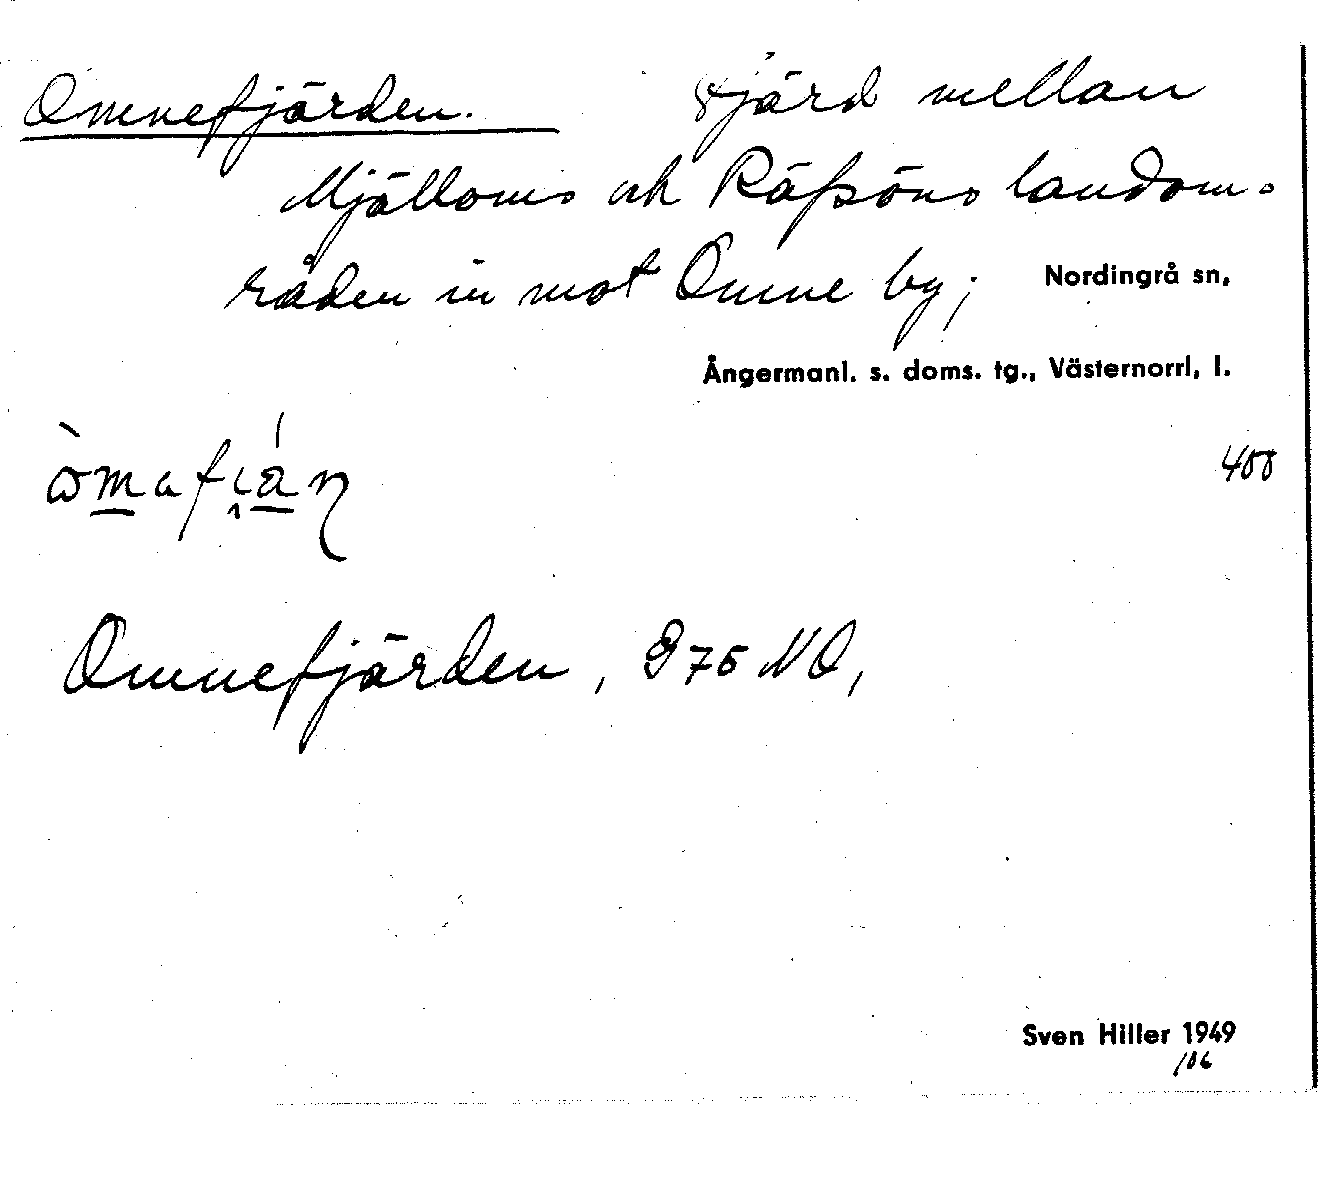 Omnefjärden. fjärd mellan
Mjälloms och Räfsöns landom-
råden in mot Omne by; Nordingrå sn,
Ångermanl. s. doms. tg., Västernorrl, l.
400
Omnefjärden, G 75 NO,
Sven Hiller 1949
106